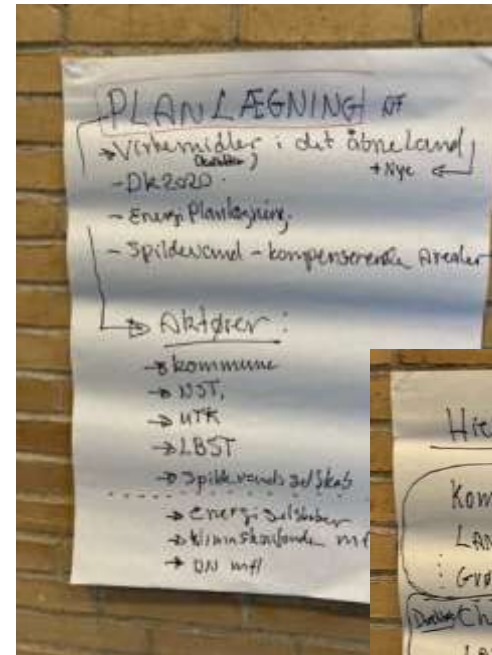 PLANLÆGNING af
→ Virkemidler i det åbneland
+ Nye
- DK2020.
- Energi Planlægning.
- Spildevand - kompenserende Arealer
→ Aktører:
→ kommune
→ NST,
→ MTK
→ LBST
→ Spildevandsselskab
→ Energiselskaber
→ Klimaskovfonden mfl
→ DN mfl
Kom
LAN